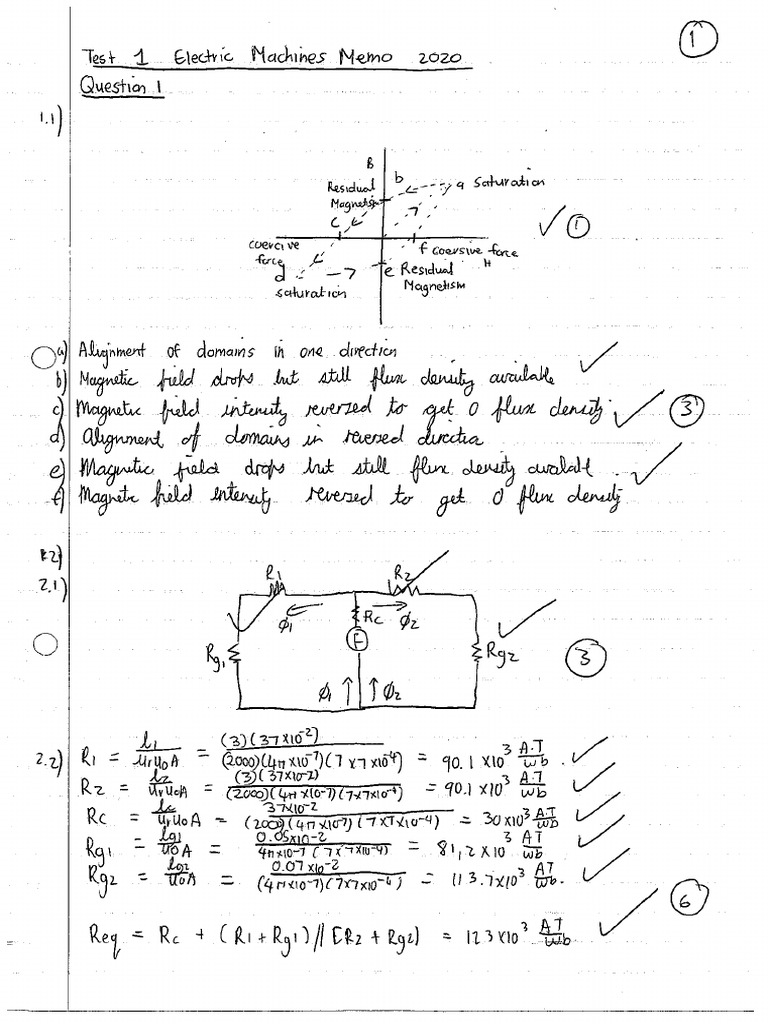 1
Test 1 Electric Machines Memo 2020
Question 1
1.1)
B
Residual Magnetism
b
a Saturation
c
coercive force
f coersive force
H
d
saturation
e Residual Magnetism
✓ 1
a) Alignment of domains in one direction ✓
b) Magnetic field drops but still flux density available
c) Magnetic field intensity reversed to get 0 flux density ✓ 3
d) Alignment of domains in reversed direction
e) Magnetic field drops but still flux density availabl ✓
f) Magnetic field intensity reversed to get 0 flux density
2.1)
R1 R2
ϕ1 Rc ϕ2
Rg1 F Rg2
3
ϕ1 ϕ2
2.2) R1 = l1/(UrUoA) = (3)(37×10⁻²)/((2000)(4π×10⁻⁷)(7×7×10⁻⁴)) = 90.1×10³ A.T/Wb ✓
R2 = l2/(UrUoA) = (3)(37×10-2)/((2000)(4π×10-7)(7×7×10⁻⁴)) = 90.1×10³ A.T/Wb ✓
Rc = lc/(UrUoA) = 37×10-2/((2000)(4π×10-7)(7×7×10-4)) = 30×10³ A.T/Wb ✓
Rg1 = lg1/(UoA) = 0.05×10-2/(4π×10-7(7×7×10-4)) = 81,2×10³ AT/Wb ✓
Rg2 = lg2/(UoA) = 0.07×10-2/((4π×10-7)(7×7×10-4)) = 113.7×10³ AT/Wb. ✓
6
Req = Rc + (R1+Rg1)//[R2+Rg2) = 123×10³ AT/Wb ✓